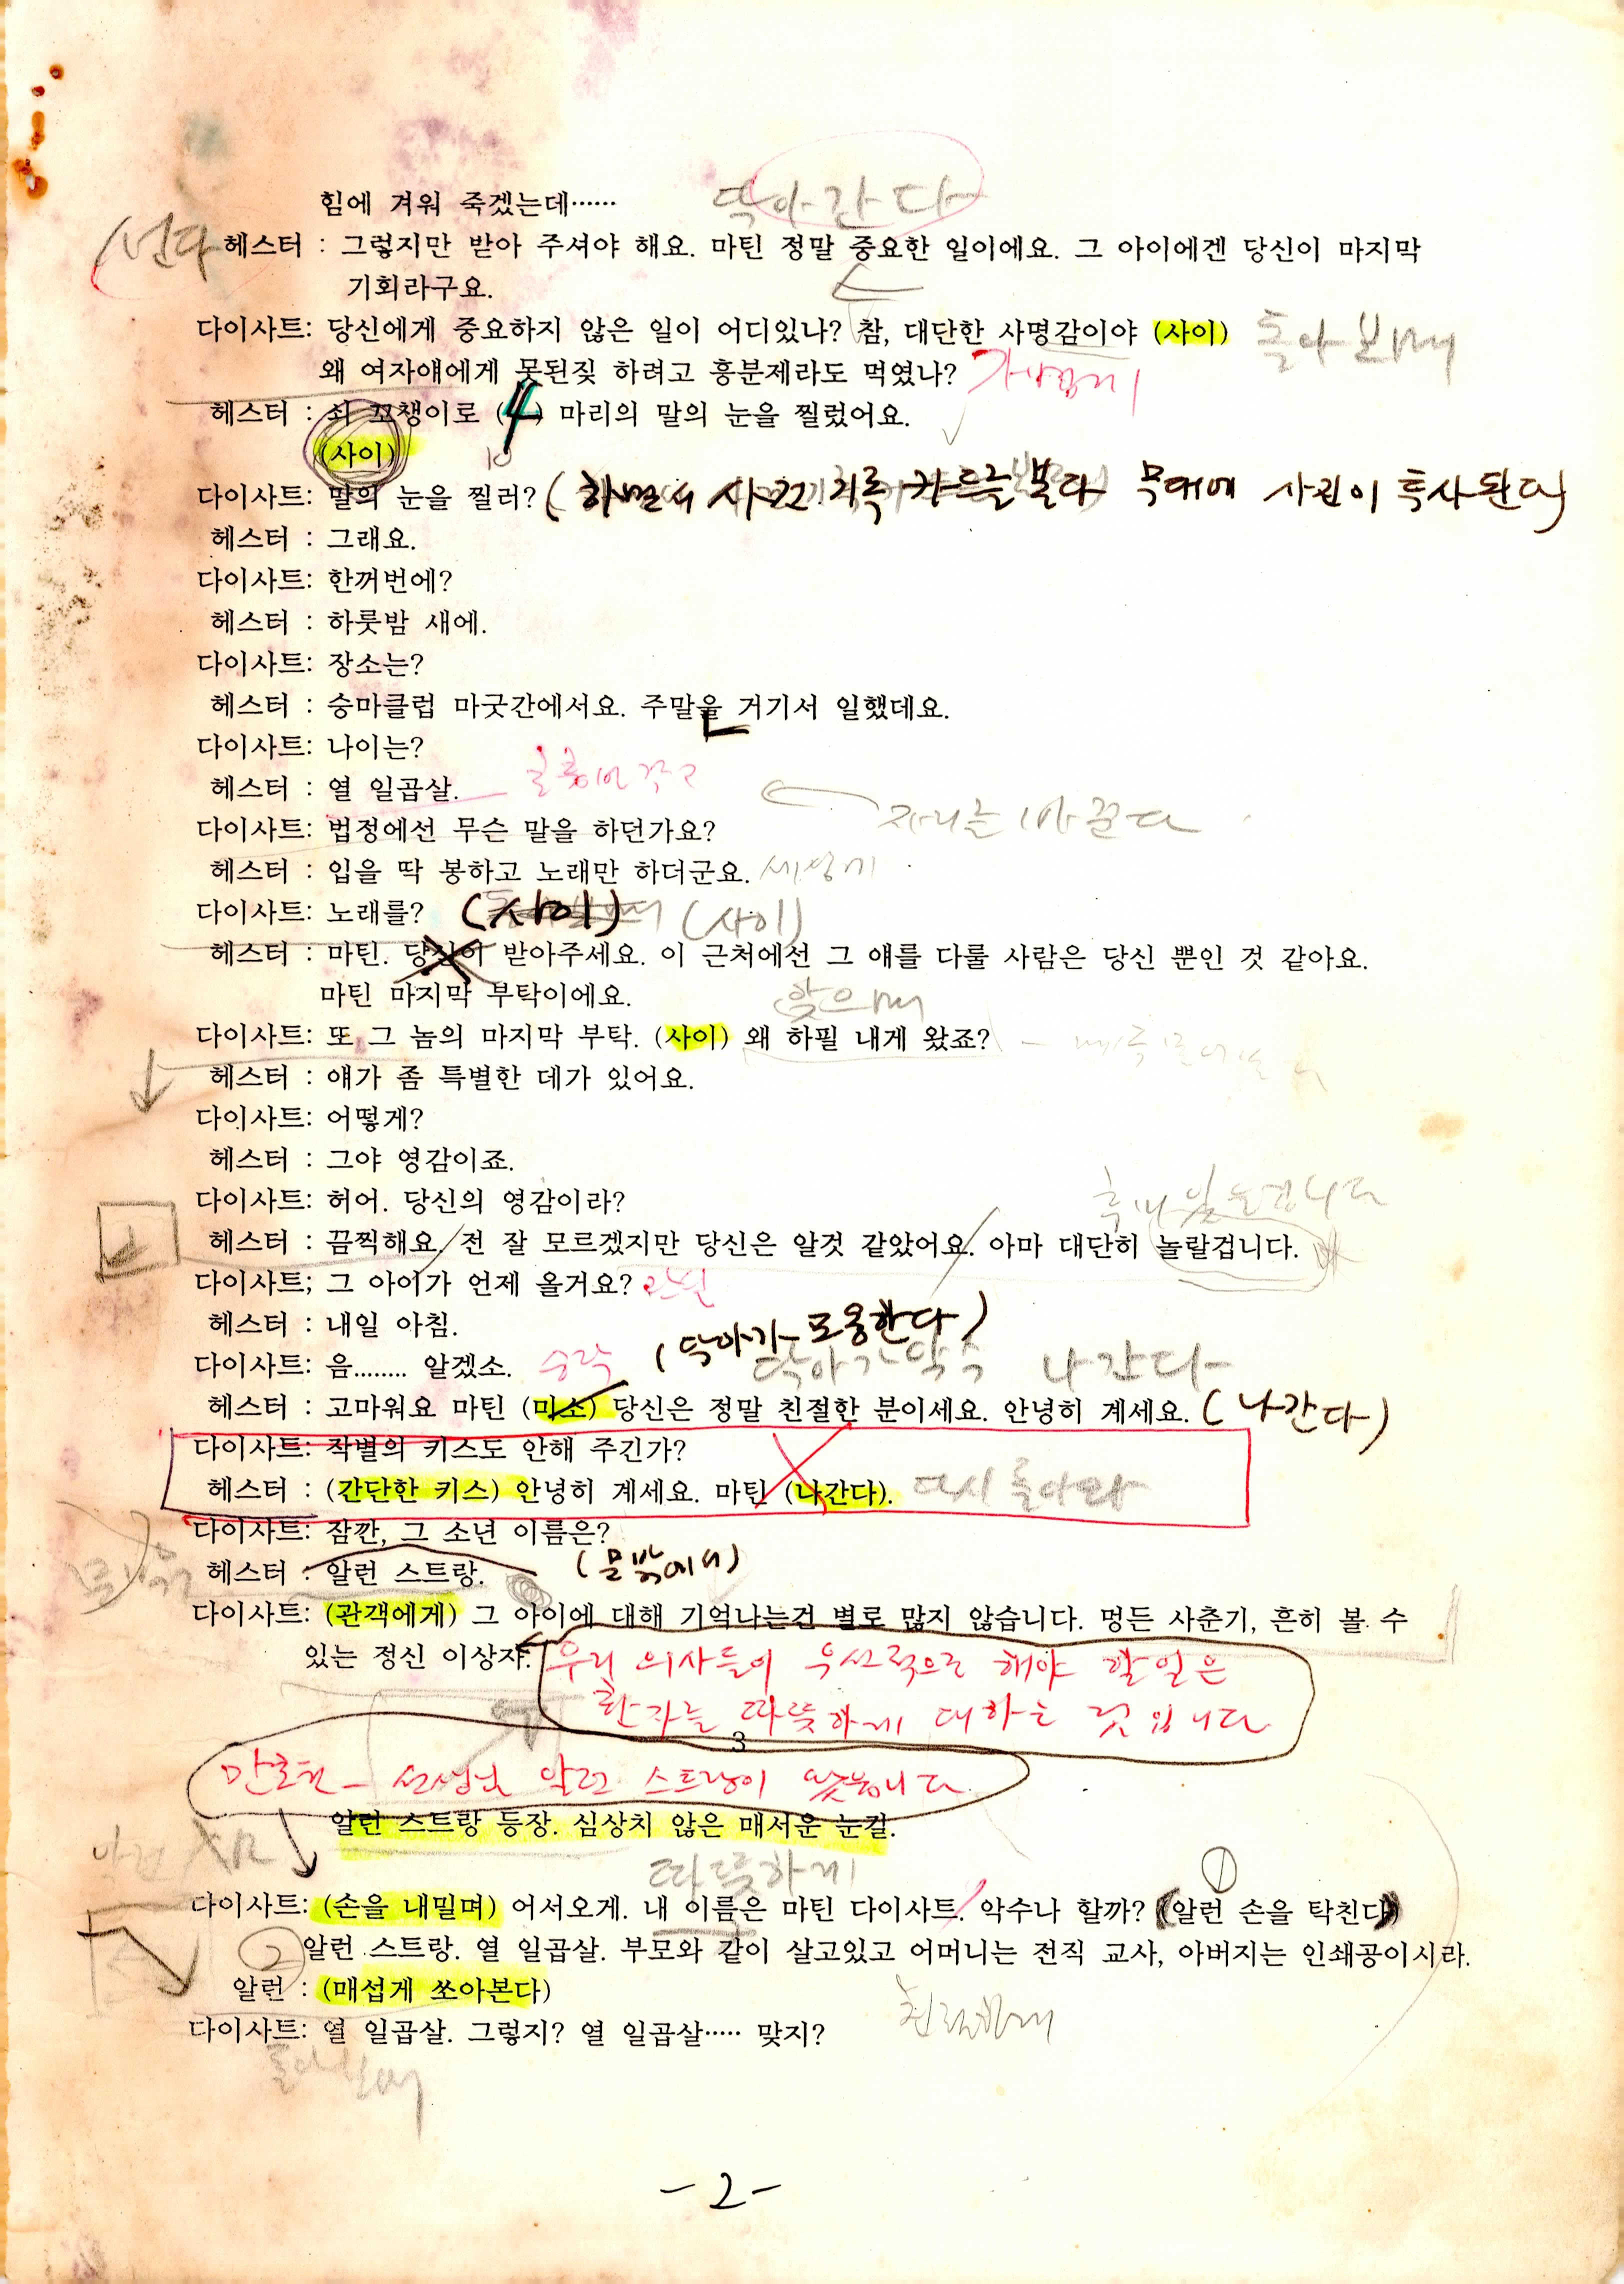 힘에 겨워 죽겠는데……
닥아간다
헤스터 : 그렇지만 받아 주셔야 해요. 마틴 정말 중요한 일이에요. 그 아이에겐 당신이 마지막
기회라구요.
다이사트: 당신에게 중요하지 않은 일이 어디있나? 참, 대단한 사명감이야 (사이)
돌아보며
왜 여자얘에게 못된짖 하려고 흥분제라도 먹였나?
헤스터 : 쇠 꼬챙이로 (4) 마리의 말의 눈을 찔렀어요.
(사이)
다이사트: 말의 눈을 찔러? (하면서 사건 기록 카드를 본다 무대에 사진이 투사된다)
헤스터 : 그래요.
다이사트: 한꺼번에?
헤스터 : 하룻밤 새에.
다이사트: 장소는?
헤스터 : 승마클럽 마굿간에서요. 주말을 거기서 일했데요.
다이사트: 나이는?
헤스터 : 열 일곱살.
자리를 바꾼다
다이사트: 법정에선 무슨 말을 하던가요?
헤스터 : 입을 딱 봉하고 노래만 하더군요.
다이사트: 노래를? (사이) (사이)
헤스터 : 마틴. 당신이 받아주세요. 이 근처에선 그 얘를 다룰 사람은 당신 뿐인 것 같아요.
마틴 마지막 부탁이에요.
앉으며
다이사트: 또 그 놈의 마지막 부탁. (사이) 왜 하필 내게 왔죠?
헤스터 : 얘가 좀 특별한 데가 있어요.
다이사트: 어떻게?
헤스터 : 그야 영감이죠.
다이사트: 허어. 당신의 영감이라?
헤스터 : 끔찍해요. 전 잘 모르겠지만 당신은 알것 같았어요. 아마 대단히 놀랄겁니다.
다이사트; 그 아이가 언제 올거요?
헤스터 : 내일 아침.
(닥아가 포옹한다)
다이사트: 음........ 알겠소. 승락 닥아가 악수 나간다
헤스터 : 고마워요 마틴 (미소) 당신은 정말 친절한 분이세요. 안녕히 계세요. (나간다)
다이사트: 작별의 키스도 안해 주긴가?
헤스터 : (간단한 키스) 안녕히 계세요. 마틴 (나간다). 다시 돌아와
다이사트: 잠깐, 그 소년 이름은?
헤스터 : 알런 스트랑. (문밖에서)
다이사트: (관객에게) 그 아이에 대해 기억나는건 별로 많지 않습니다. 멍든 사춘기, 흔히 볼 수
있는 정신 이상자.
우리 의사들이 우선적으로 해야 할일은
환자를 따뜻하게 대하는 것입니다
3
선생님 알런 스트랑이 왔습니다
알런 스트랑 등장. 심상치 않은 매서운 눈컬.
따뜻하게
①
다이사트: (손을 내밀며) 어서오게. 내 이름은 마틴 다이사트. 악수나 할까? (알런 손을 탁친다)
② 알런 스트랑. 열 일곱살. 부모와 같이 살고있고 어머니는 전직 교사, 아버지는 인쇄공이시라.
알런 : (매섭게 쏘아본다)
다이사트: 열 일곱살. 그렇지? 열 일곱살····· 맞지?
- 2 -